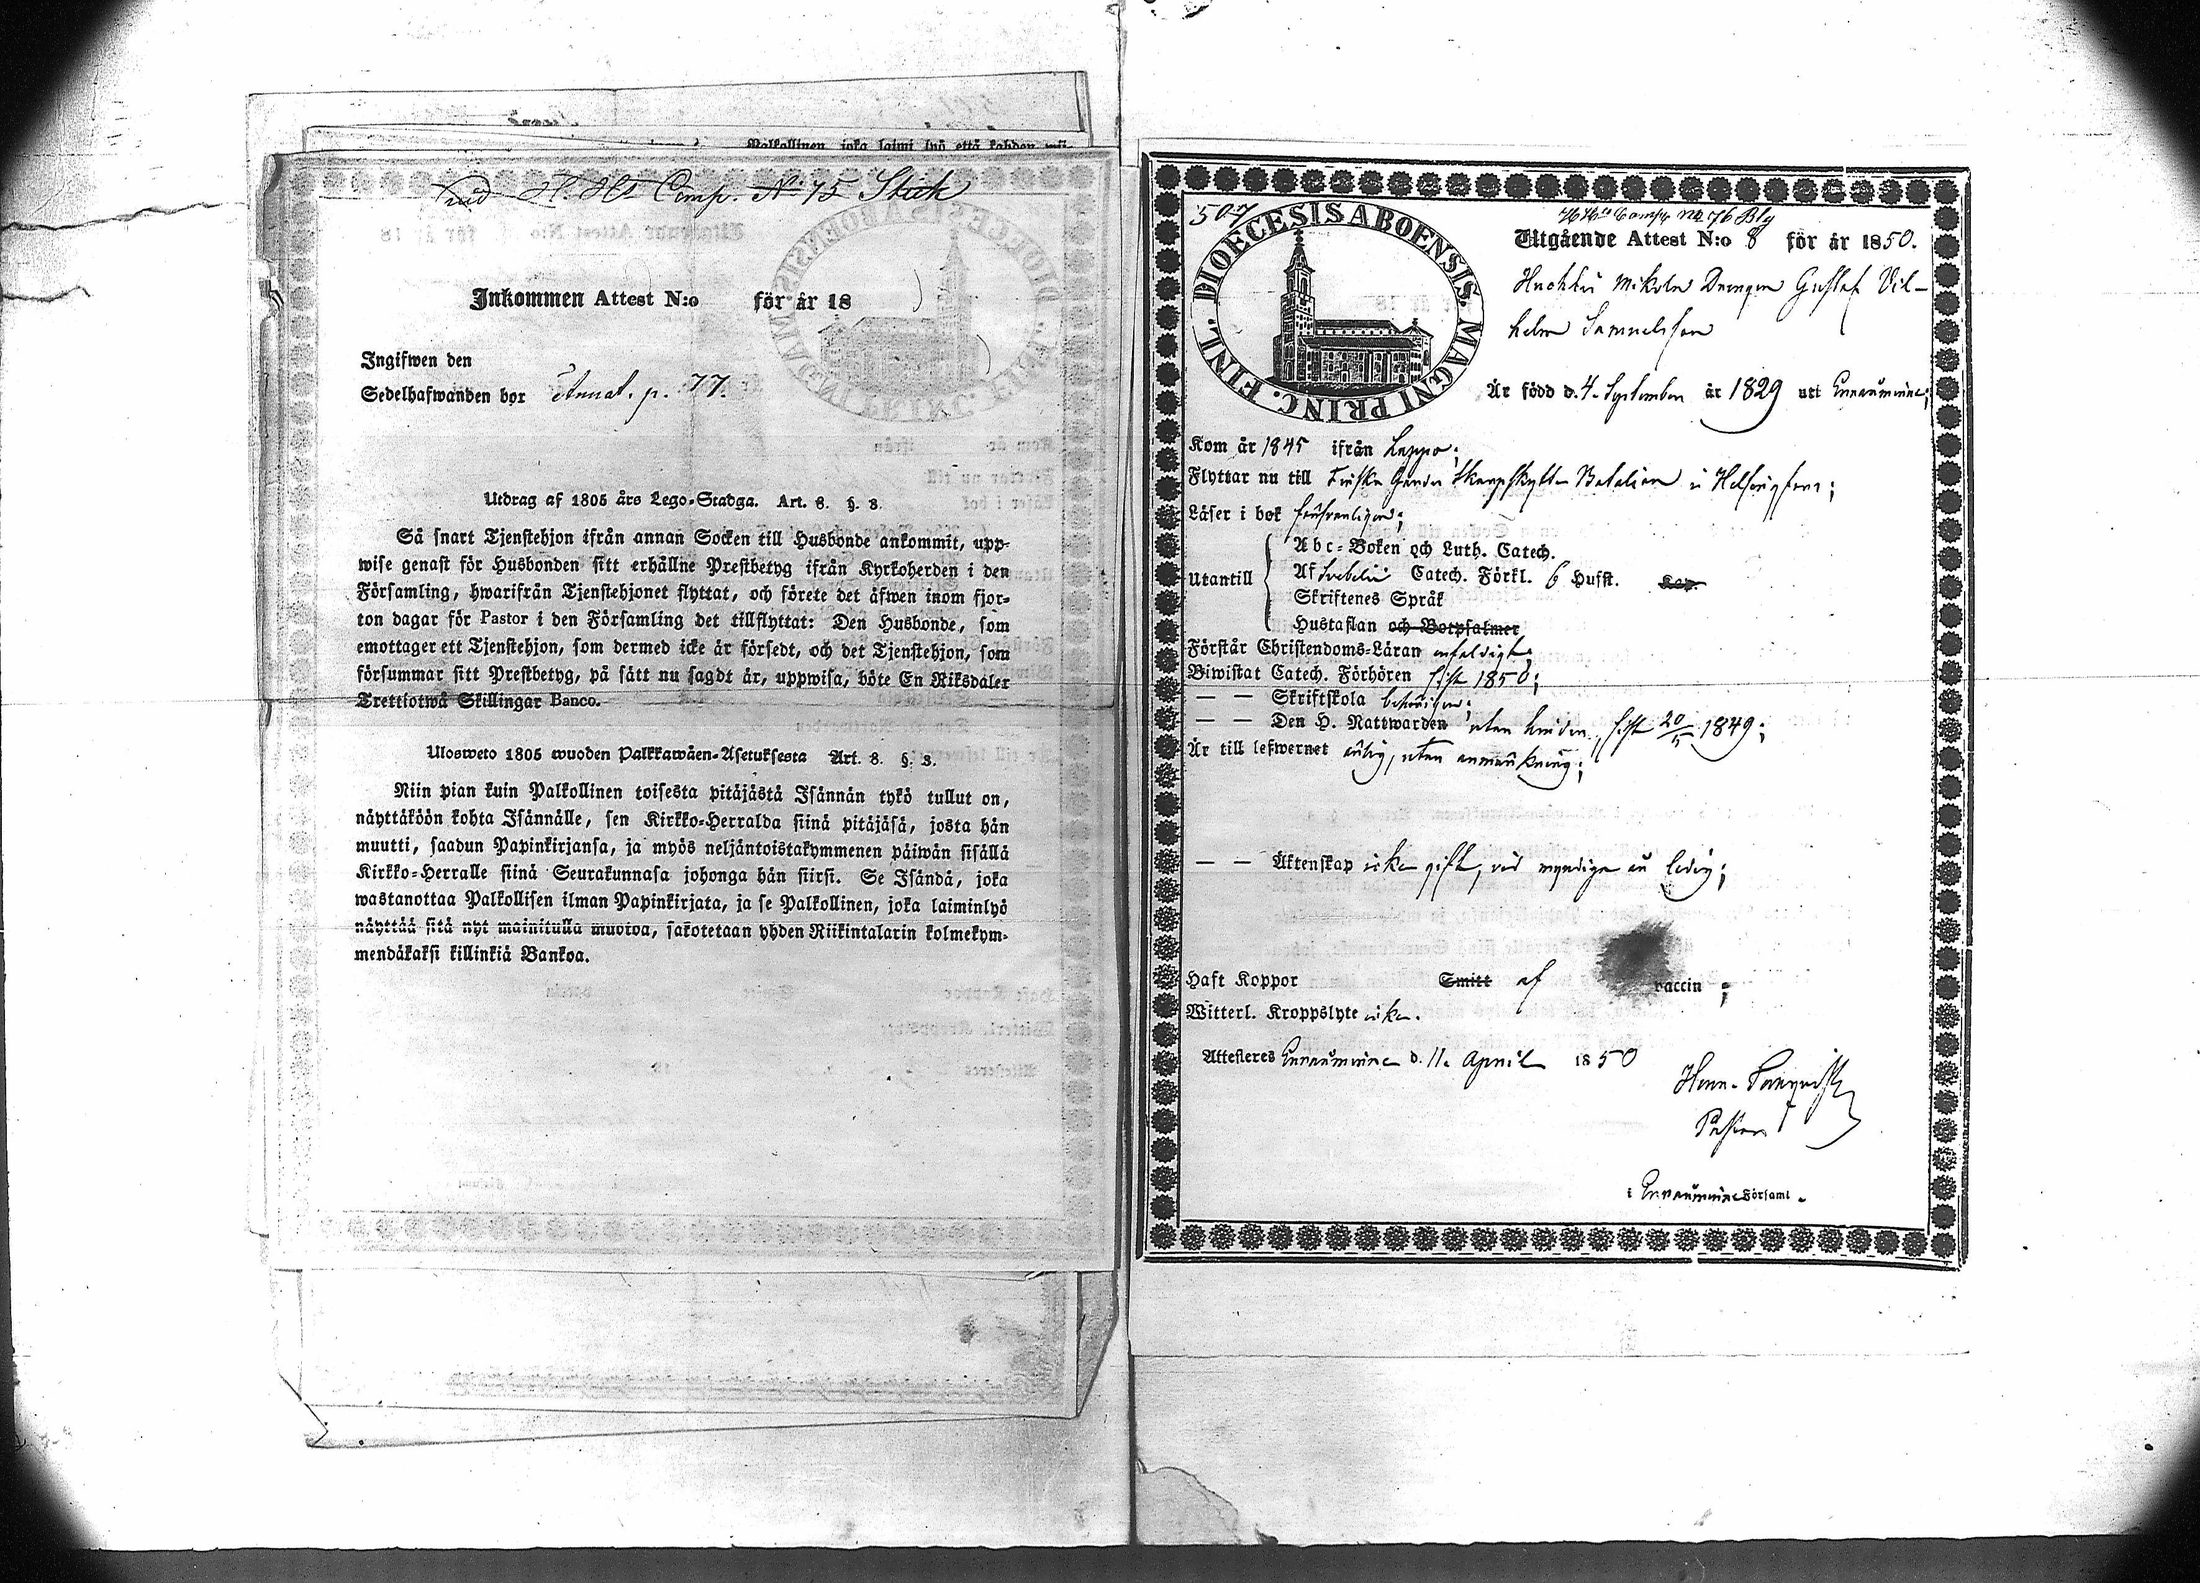 Palkollinen, joka laimi lyö että kahden wii
vid H. Hts Comp. No 75 Stick
Inkommen Attest N:o för år 18
Ingifwen den
Sedelhafwanden bor Annat. p. 77.
Utdrag af 1805 års Lego-Stadga. Art. 8. §. 3.
Så snart Tjenstehjon ifrån annan Socken till Husbonde ankommit, upp-
wise genast för Husbonden sitt erhållne Prestbetyg ifrån Kyrkoherden i den
Församling, hwarifrån Tjenstehjonet flyttat, och förete det äfwen inom fjor-
ton dagar för Pastor i den Församling det tillflyttat: Den Husbonde, som
emottager ett Tjenstehjon, som dermed icke är försedt, och det Tjenstehjon, som
försummar sitt Prestbetyg, på sätt nu sagdt är, uppwisa, böte En Riksdaler
Trettiotwå Skillingar Banco.
Ulosweto 1805 wuoden Palkkawäen-Asetuksesta Art. 8. §. 3.
Niin pian kuin Palkollinen toisesta pitäjästä Isännän tykö tullut on,
näyttäköön kohta Isännälle, sen Kirkko-Herralda siinä pitäjäsä, josta hän
muutti, saadun Papinkirjansa, ja myös neljäntoistakymmenen päiwän sisällä
Kirkko-Herralle siinä Seurakunnasa johonga hän siirsi. Se Isändä, joka
wastanottaa Palkollisen ilman Papinkirjata, ja se Palkollinen, joka laiminlyö
näyttää sitä nyt mainitulla muotoa, sakotetaan yhden Riikintalarin kolmekym-
mendäkaksi killinkiä Bankoa.
507
DIOECESIS ABOENSIS. MAGNI PRINC. FINL.
Comp No 76 Bly
Utgående Attest N:o 8 för år 1850.
Huchtis Mikola Drengen Gustaf Vil-
helm Samuelsson
Är född d. 4. September år 1829 uti Ennäuminne;
Kom år 1845 ifrån Loppo;
Flyttar nu till Finska Gardes Skarpskytte Bataljon i Helsingfors;
Läser i bok försvarligen;
Abc-Boken och Luth. Catech.
Utantill Af Svebelii Catech. Förkl. 6 Hufst. Cap.
Skriftenes Språk
Hustaflan och Botpsalmer
Förstår Christendoms-Läran enfaldigt;
Biwistat Catech. Förhören sist 1850;
— — Skriftskola behörigen;
— — Den H. Nattwarden utan hinder, sist 20/5 1849;
Är till lefwernet ärlig, utan anmärkning;
— — Äktenskap icke gift, vid myndige år ledig;
Haft Koppor Smitt af vaccin;
Witterl. Kroppslyte icke.
Attesteres Ennäuminne d. 11. April 1850
Henr.
Pastor
i Ennäuminne Församl.